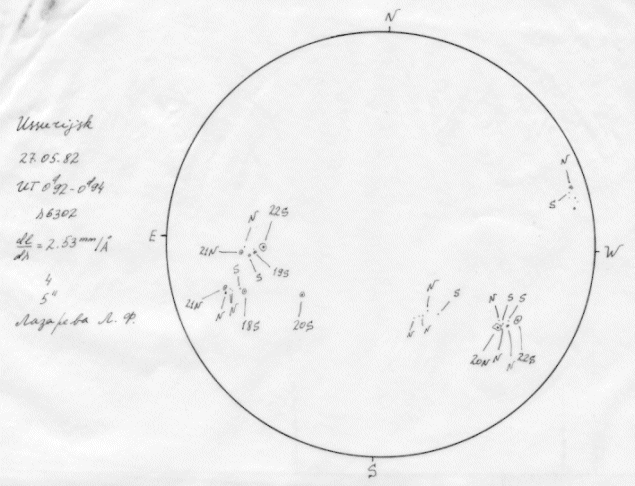 N
Ussurijsk
27.05.82
UT 0ᵈ92-0ᵈ94
λ6302
dl/dλ = 2.53 mm/Å
4
5"
Лазарева Л. Ф.
N
S
E
W
N
22S
21N
S
19S
S
21N
N
N
18S
20S
N
S
N
N
N
S
S
20N
N
N
22S
S